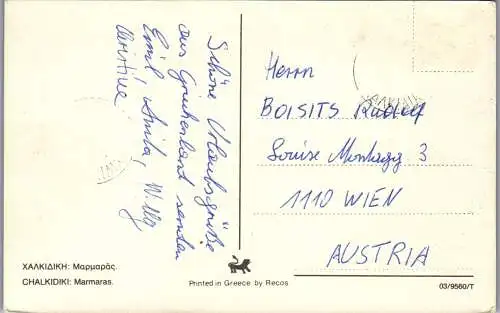 Schöne Urlaubsgrüße
aus Griechenland senden
Emil, Anita, Willy
Christine
Herrn
BOISITS Rudolf
Louise Montagg 3
1110 WIEN
AUSTRIA
ΧΑΛΚΙΔΙΚΗ: Μαρμαρᾶς.
CHALKIDIKI: Marmaras.
Printed in Greece by Recos
03/9560/T